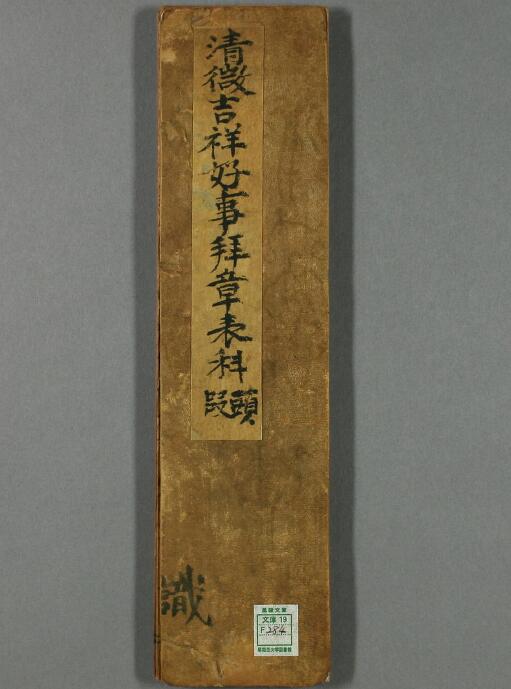 清微吉祥好事拜章表科
頭段
識
風陵文庫
文庫 19
F 284
早稲田大学図書館